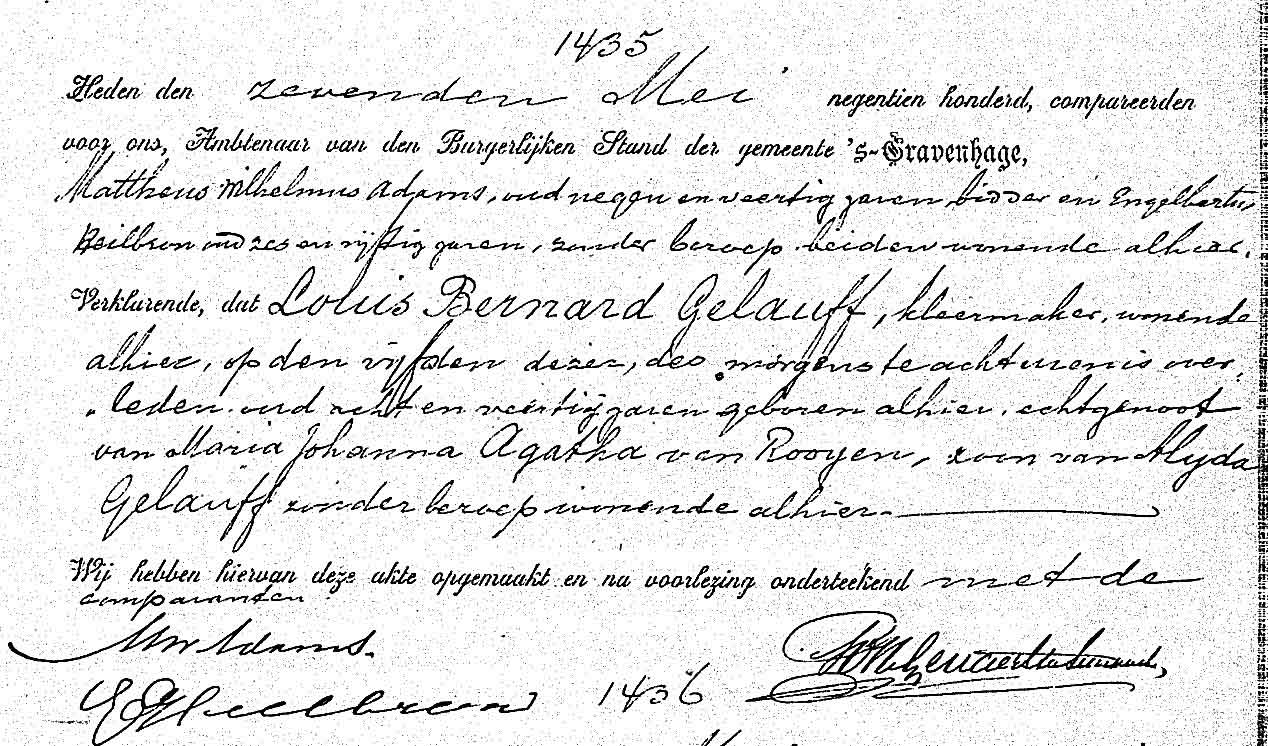 1435
Heden den zevenden Mei negentien honderd, compareerden
voor ons, Ambtenaar van den Burgerlijken Stand der gemeente 's-Gravenhage,
Mattheus Wilhelmus Adams, oud negen en veertig jaren, bidder en Engelbertus
Heilbron oud zes en vijftig jaren, zonder beroep beiden wonende alhier.
Verklarende, dat Louis Bernard Gelauff, kleermaker, wonende
alhier, op den vijfden dezer, des morgens te acht uren is over
leden oud acht en veertig jaren geboren alhier, echtgenoot
van Maria Johanna Agatha van Rooyen, zoon van Alyda
Gelauff zonder beroep wonende alhier.
Wij hebben hiervan deze akte opgemaakt en na voorlezing onderteekend met de
comparanten
MW Adams.
Heilbron 1436